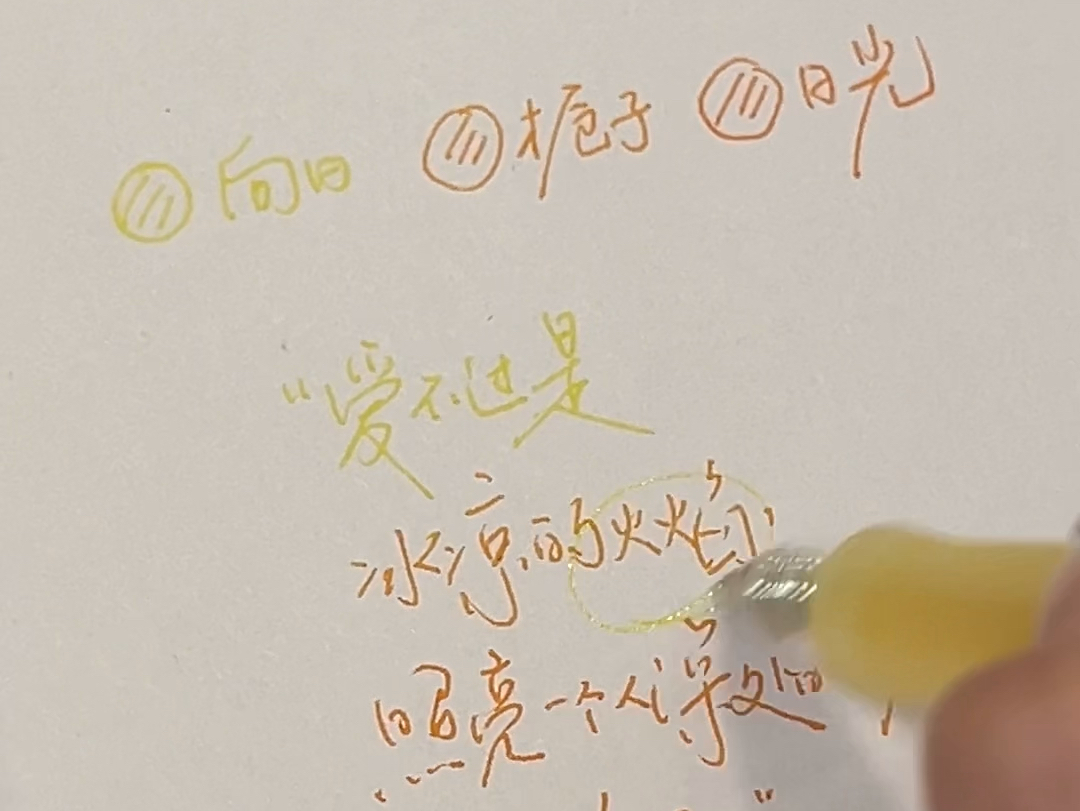 向日 栀子 日光
“爱不过是
冰凉的火焰
照亮一个人
”